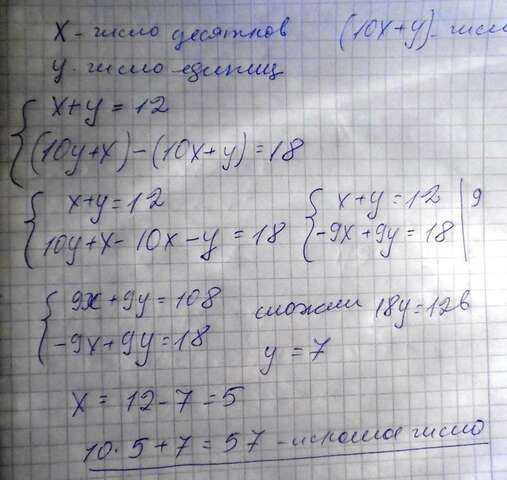 x - число десятков (10x+y) - число
y - число единиц
{ x+y=12
(10y+x)-(10x+y)=18
{ x+y=12 { x+y=12 | 9
10y+x-10x-y=18 -9x+9y=18
{ 9x+9y=108 сложим 18y=126
-9x+9y=18 y=7
x = 12-7=5
10·5+7=57 - искомое число